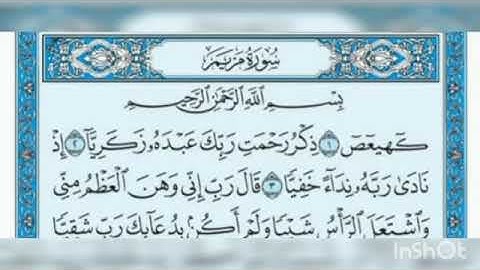 سُورَةُ مَرْيَمَ
بِسْمِ اللَّهِ الرَّحْمَٰنِ الرَّحِيمِ
كٓهيعٓصٓ ١ ذِكْرُ رَحْمَتِ رَبِّكَ عَبْدَهُۥ زَكَرِيَّآ ٢ إِذْ
نَادَىٰ رَبَّهُۥ نِدَآءً خَفِيًّا ٣ قَالَ رَبِّ إِنِّي وَهَنَ ٱلْعَظْمُ مِنِّي
وَٱشْتَعَلَ ٱلرَّأْسُ شَيْبًا وَلَمْ أَكُنۢ بِدُعَآئِكَ رَبِّ شَقِيًّا
InShOt